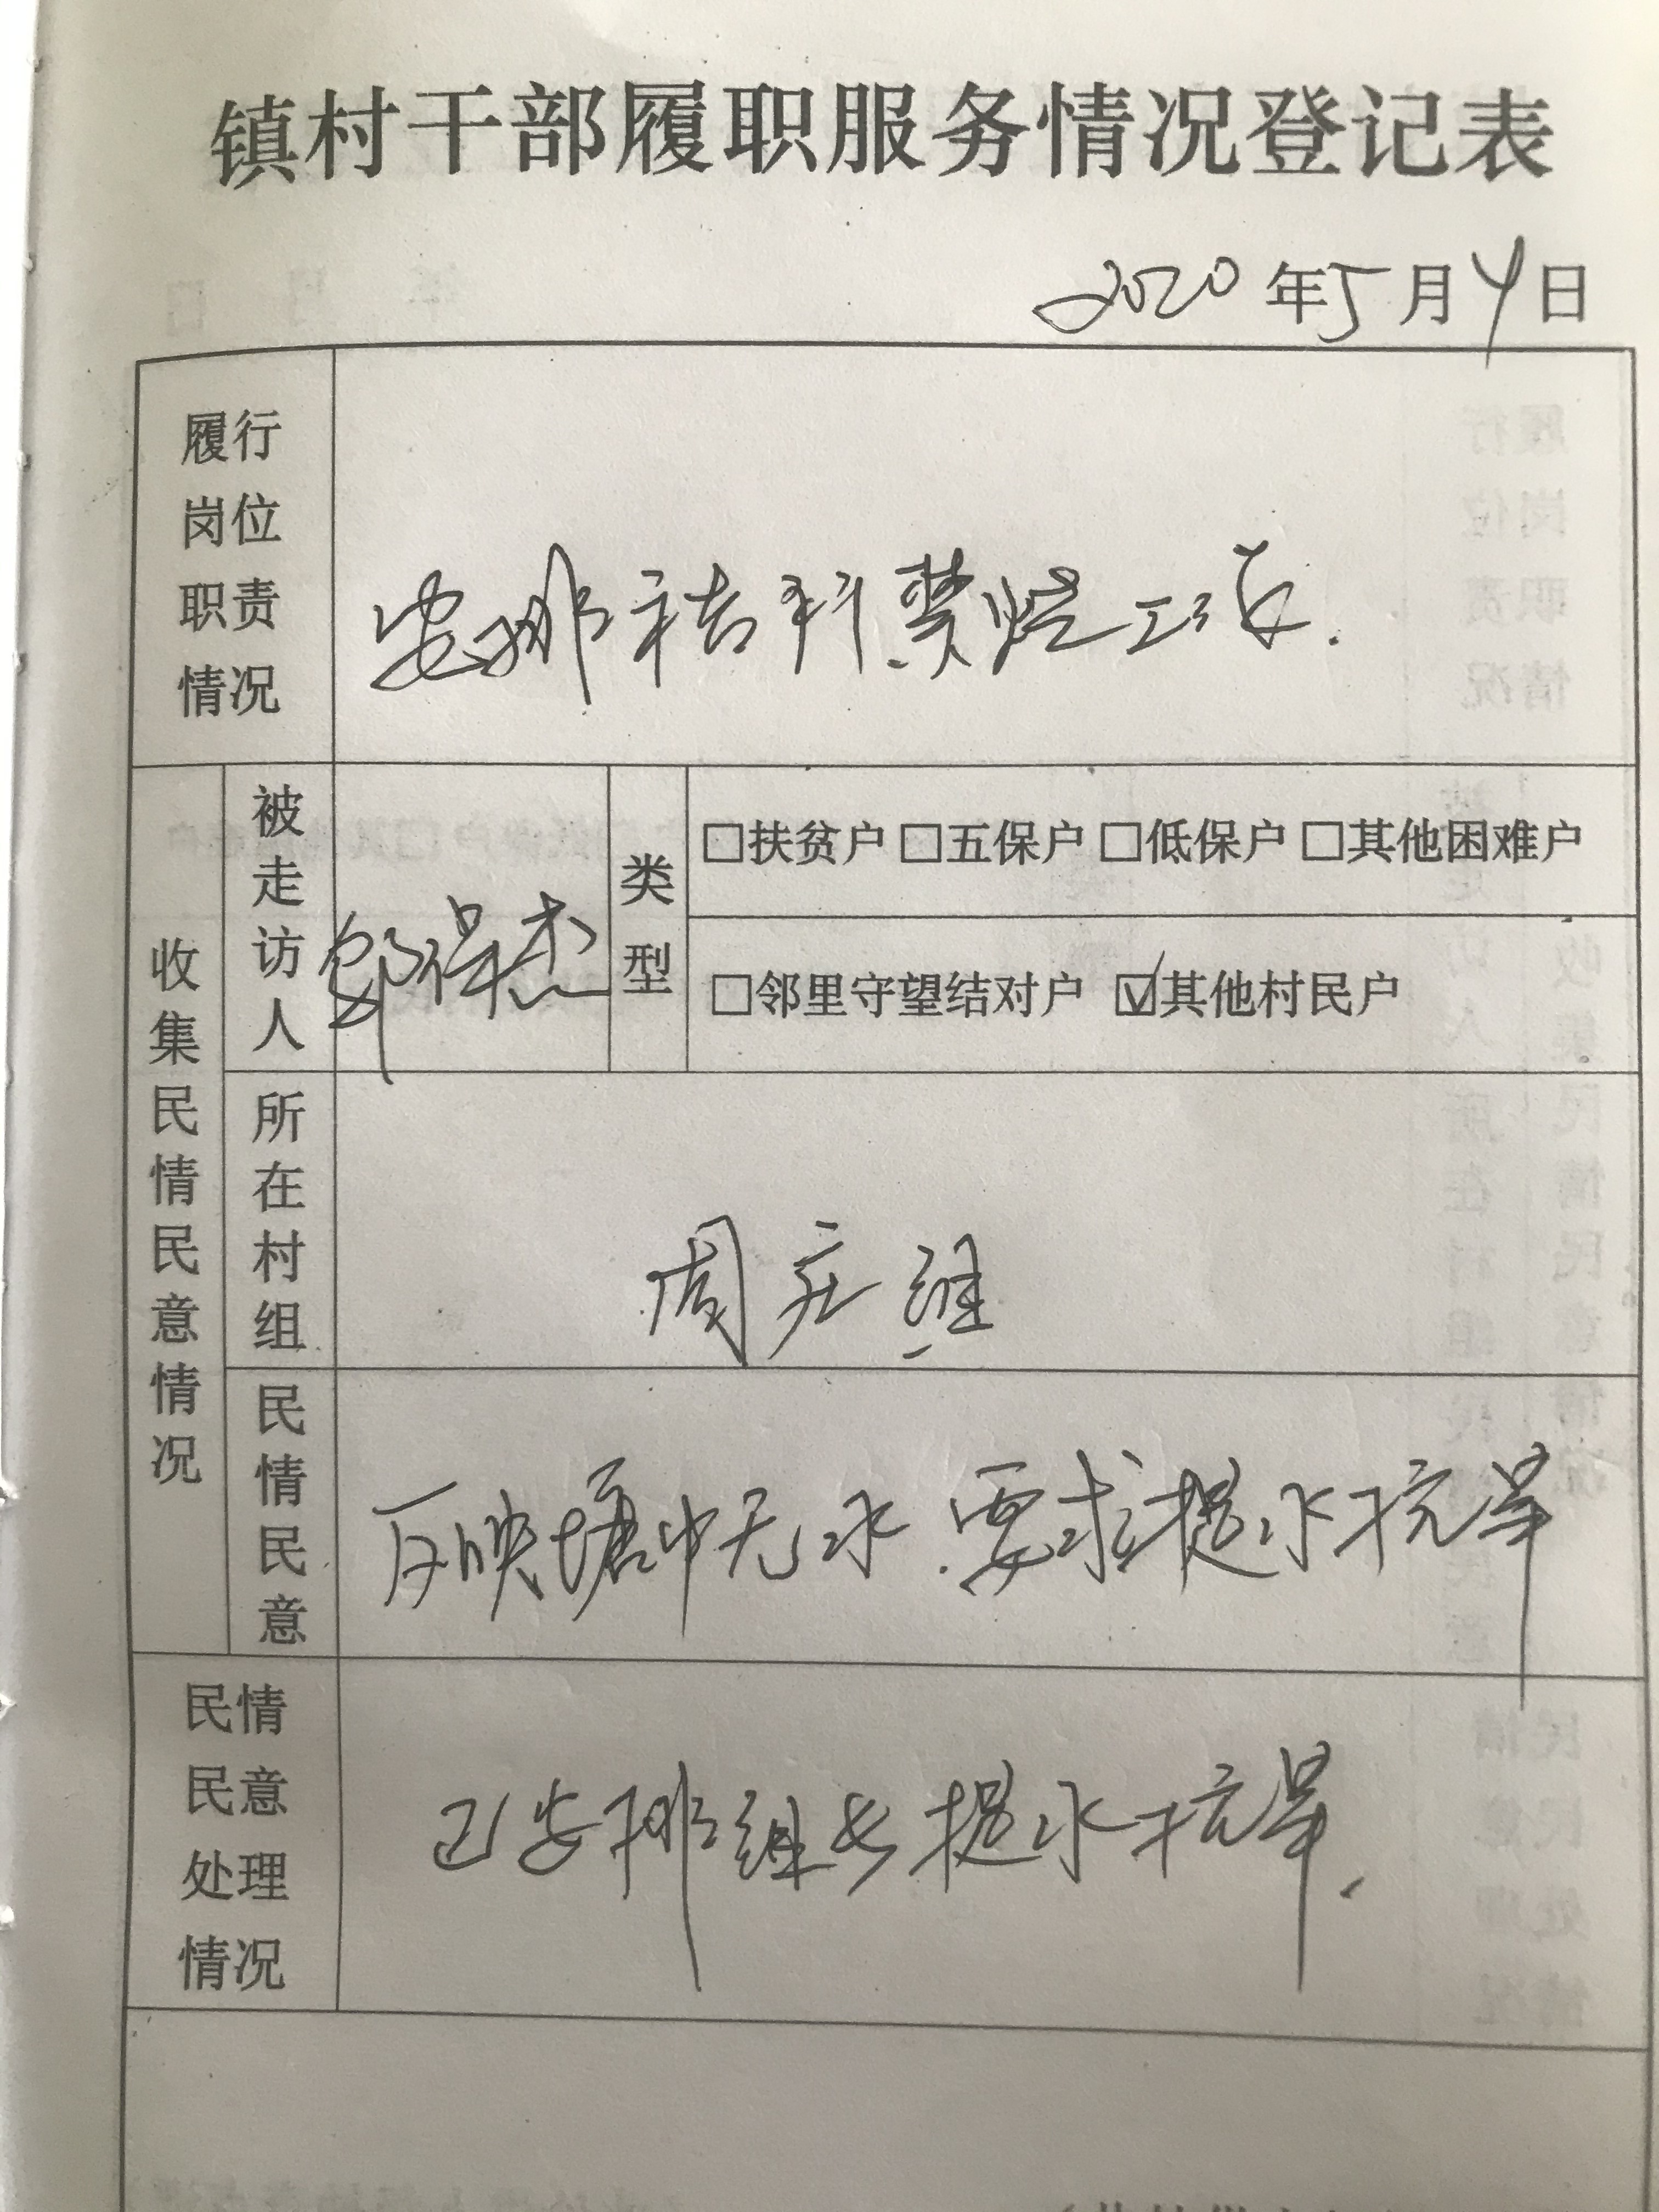 镇村干部履职服务情况登记表
2020年5月4日
履行岗位职责情况
安排秸秆禁烧工作.
收集民情民意情况
被走访人
保杰
类型
□扶贫户 □五保户 □低保户 □其他困难户
□邻里守望结对户 ☑其他村民户
所在村组
周庄组
民情民意
反映塘中无水.要求提水抗旱
民情民意处理情况
已安排组长提水抗旱.